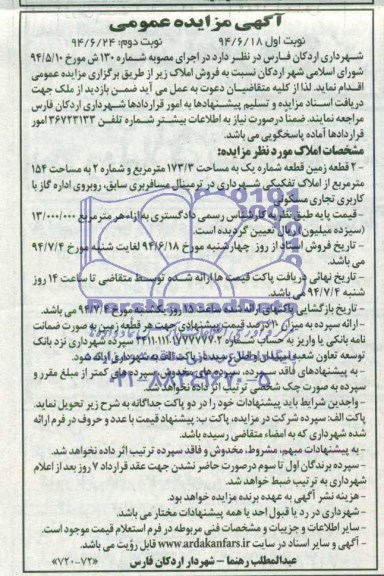 آگهی مزایده عمومی
نوبت اول ۹۴/۶/۱۸ نوبت دوم: ۹۴/۶/۲۴
شهرداری اردکان فارس در نظر دارد در اجرای مصوبه شماره ۱۳۰ ش مورخ ۹۴/۵/۱۰
شورای اسلامی شهر اردکان نسبت به فروش املاک زیر از طریق برگزاری مزایده عمومی
اقدام نماید. لذا از کلیه متقاضیان دعوت به عمل می آید ضمن بازدید از ملک جهت
دریافت اسناد مزایده و تسلیم پیشنهادها به امور قراردادها شهرداری اردکان فارس
مراجعه نمایند. ضمنا درصورت نیاز به اطلاعات بیشتر شماره تلفن ۳۶۷۲۳۱۳۳ امور
قراردادها آماده پاسخگویی می باشد.
مشخصات املاک مورد نظر مزایده:
- ۲ قطعه زمین قطعه شماره یک به مساحت ۱۷۳/۳ مترمربع و شماره ۲ به مساحت ۱۵۴
مترمربع از املاک تفکیکی شهرداری در ترمینال مسافربری سابق، روبروی اداره گاز با
کاربری تجاری مسکونی
- قیمت پایه طبق نظریه کارشناس رسمی دادگستری به ازاء هر مترمربع ۱۳/۰۰۰/۰۰۰
(سیزده میلیون) ریال تعیین گردیده است.
- تاریخ فروش اسناد از روز چهارشنبه مورخ ۹۴/۶/۱۸ لغایت شنبه مورخ ۹۴/۷/۴
می باشد.
- تاریخ نهائی دریافت پاکت قیمت ها ارائه شده توسط متقاضی تا ساعت ۱۴ روز
شنبه ۹۴/۷/۴ می باشد.
- تاریخ بازگشایی پاکتهای ارائه شده ساعت ۱۵ روز یکشنبه مورخ می باشد.
- ارائه سپرده به میزان ۱۰ درصد قیمت پیشنهادی جهت هر قطعه زمین به صورت ضمانت
نامه بانکی یا واریز به حساب شماره سپرده شهرداری نزد بانک
توسعه تعاون شعبه سپیدان و اصل رسید در پاکت الف به شهرداری ارائه شود.
- به پیشنهادهای فاقد سپرده، سپرده های مخدوش، سپرده های کمتر از مبلغ مقرر و
سپرده به صورت چک شخصی ترتیب اثر داده نخواهد شد.
- واجدین شرایط باید پیشنهادات خود را در دو پاکت جداگانه به شرح زیر تحویل نماید.
پاکت الف: سپرده شرکت در مزایده، پاکت ب: پیشنهاد قیمت با عدد و حروف در فرم ارائه
شده شهرداری که به امضاء متقاضی رسیده باشد.
- به پیشنهادات مبهم، مشروط، مخدوش و فاقد سپرده ترتیب اثر داده نخواهد شد.
- سپرده برندگان اول تا سوم درصورت حاضر نشدن جهت عقد قرارداد ۷ روز بعد از اعلام
شهرداری به ترتیب ضبط خواهد شد.
- هزینه نشر آگهی به عهده برنده مزایده خواهد بود.
- شهرداری در رد یا قبول احد یا همه پیشنهادات مختار می باشد.
- سایر اطلاعات و جزییات و مشخصات فنی مربوطه در فرم استعلام قیمت موجود است.
- آگهی و سایر اسناد در سایت www.ardakanfars.ir قابل رؤیت می باشد.
عبدالمطلب رهنما – شهردار اردکان فارس «۷۲-۷۲۰»